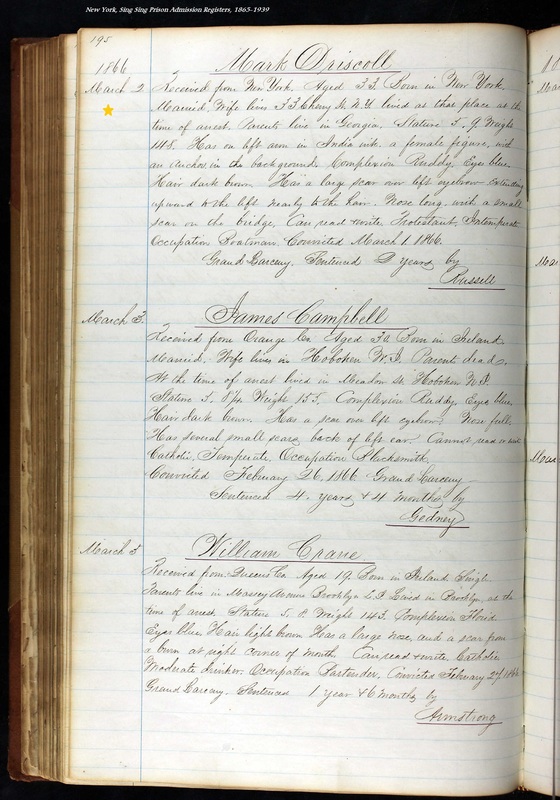 New York, Sing Sing Prison Admission Registers, 1865-1939
195
1866
Mark Driscoll
March 2
Received from New York. Aged 33. Born in New York.
Married. Wife lives 33 Cherry St. N.Y. lived at that place at the
time of arrest. Parents live in Georgia. Stature 5. 9. Weight
148. Has on left arm in India ink a female figure, with
an anchor in the background. Complexion Ruddy. Eyes blue.
Hair dark brown. Has a large scar over left eyebrow extending
upward to the left nearly to the hair. Nose long with a small
scar on the bridge. Can read & write. Protestant. Intemperate
Occupation Boatman. Convicted March 1. 1866.
Grand Larceny. Sentenced 2 years by
Russell
March 3.
James Campbell
Received from Orange Co. Aged 30. Born in Ireland.
Married. Wife lives in Hoboken N.J. Parents dead.
At the time of arrest lived in Meadow St. Hoboken N.J.
Stature 5. 8¼ Weight 155. Complexion Ruddy. Eyes blue.
Hair dark brown. Has a scar over left eyebrow. Nose full.
Has several small scars back of left ear. Cannot read or write
Catholic. Temperate. Occupation Blacksmith.
Convicted February 26, 1866 Grand Larceny
Sentenced 4 years & 4 months by
Gedney
March 3
William Crane
Received from Queens Co. Aged 19. Born in Ireland. Single.
Parents live in Avenue Brooklyn L.I. Lived in Brooklyn, at the
time of arrest. Stature 5. 8. Weight 143. Complexion Florid.
Eyes blue. Hair light brown. Has a large nose, and a scar from
a burn at right corner of mouth. Can read & write. Catholic
Moderate drinker. Occupation Bartender. Convicted February 27 1866
Grand Larceny. Sentenced 1 year & 6 months by
Armstrong